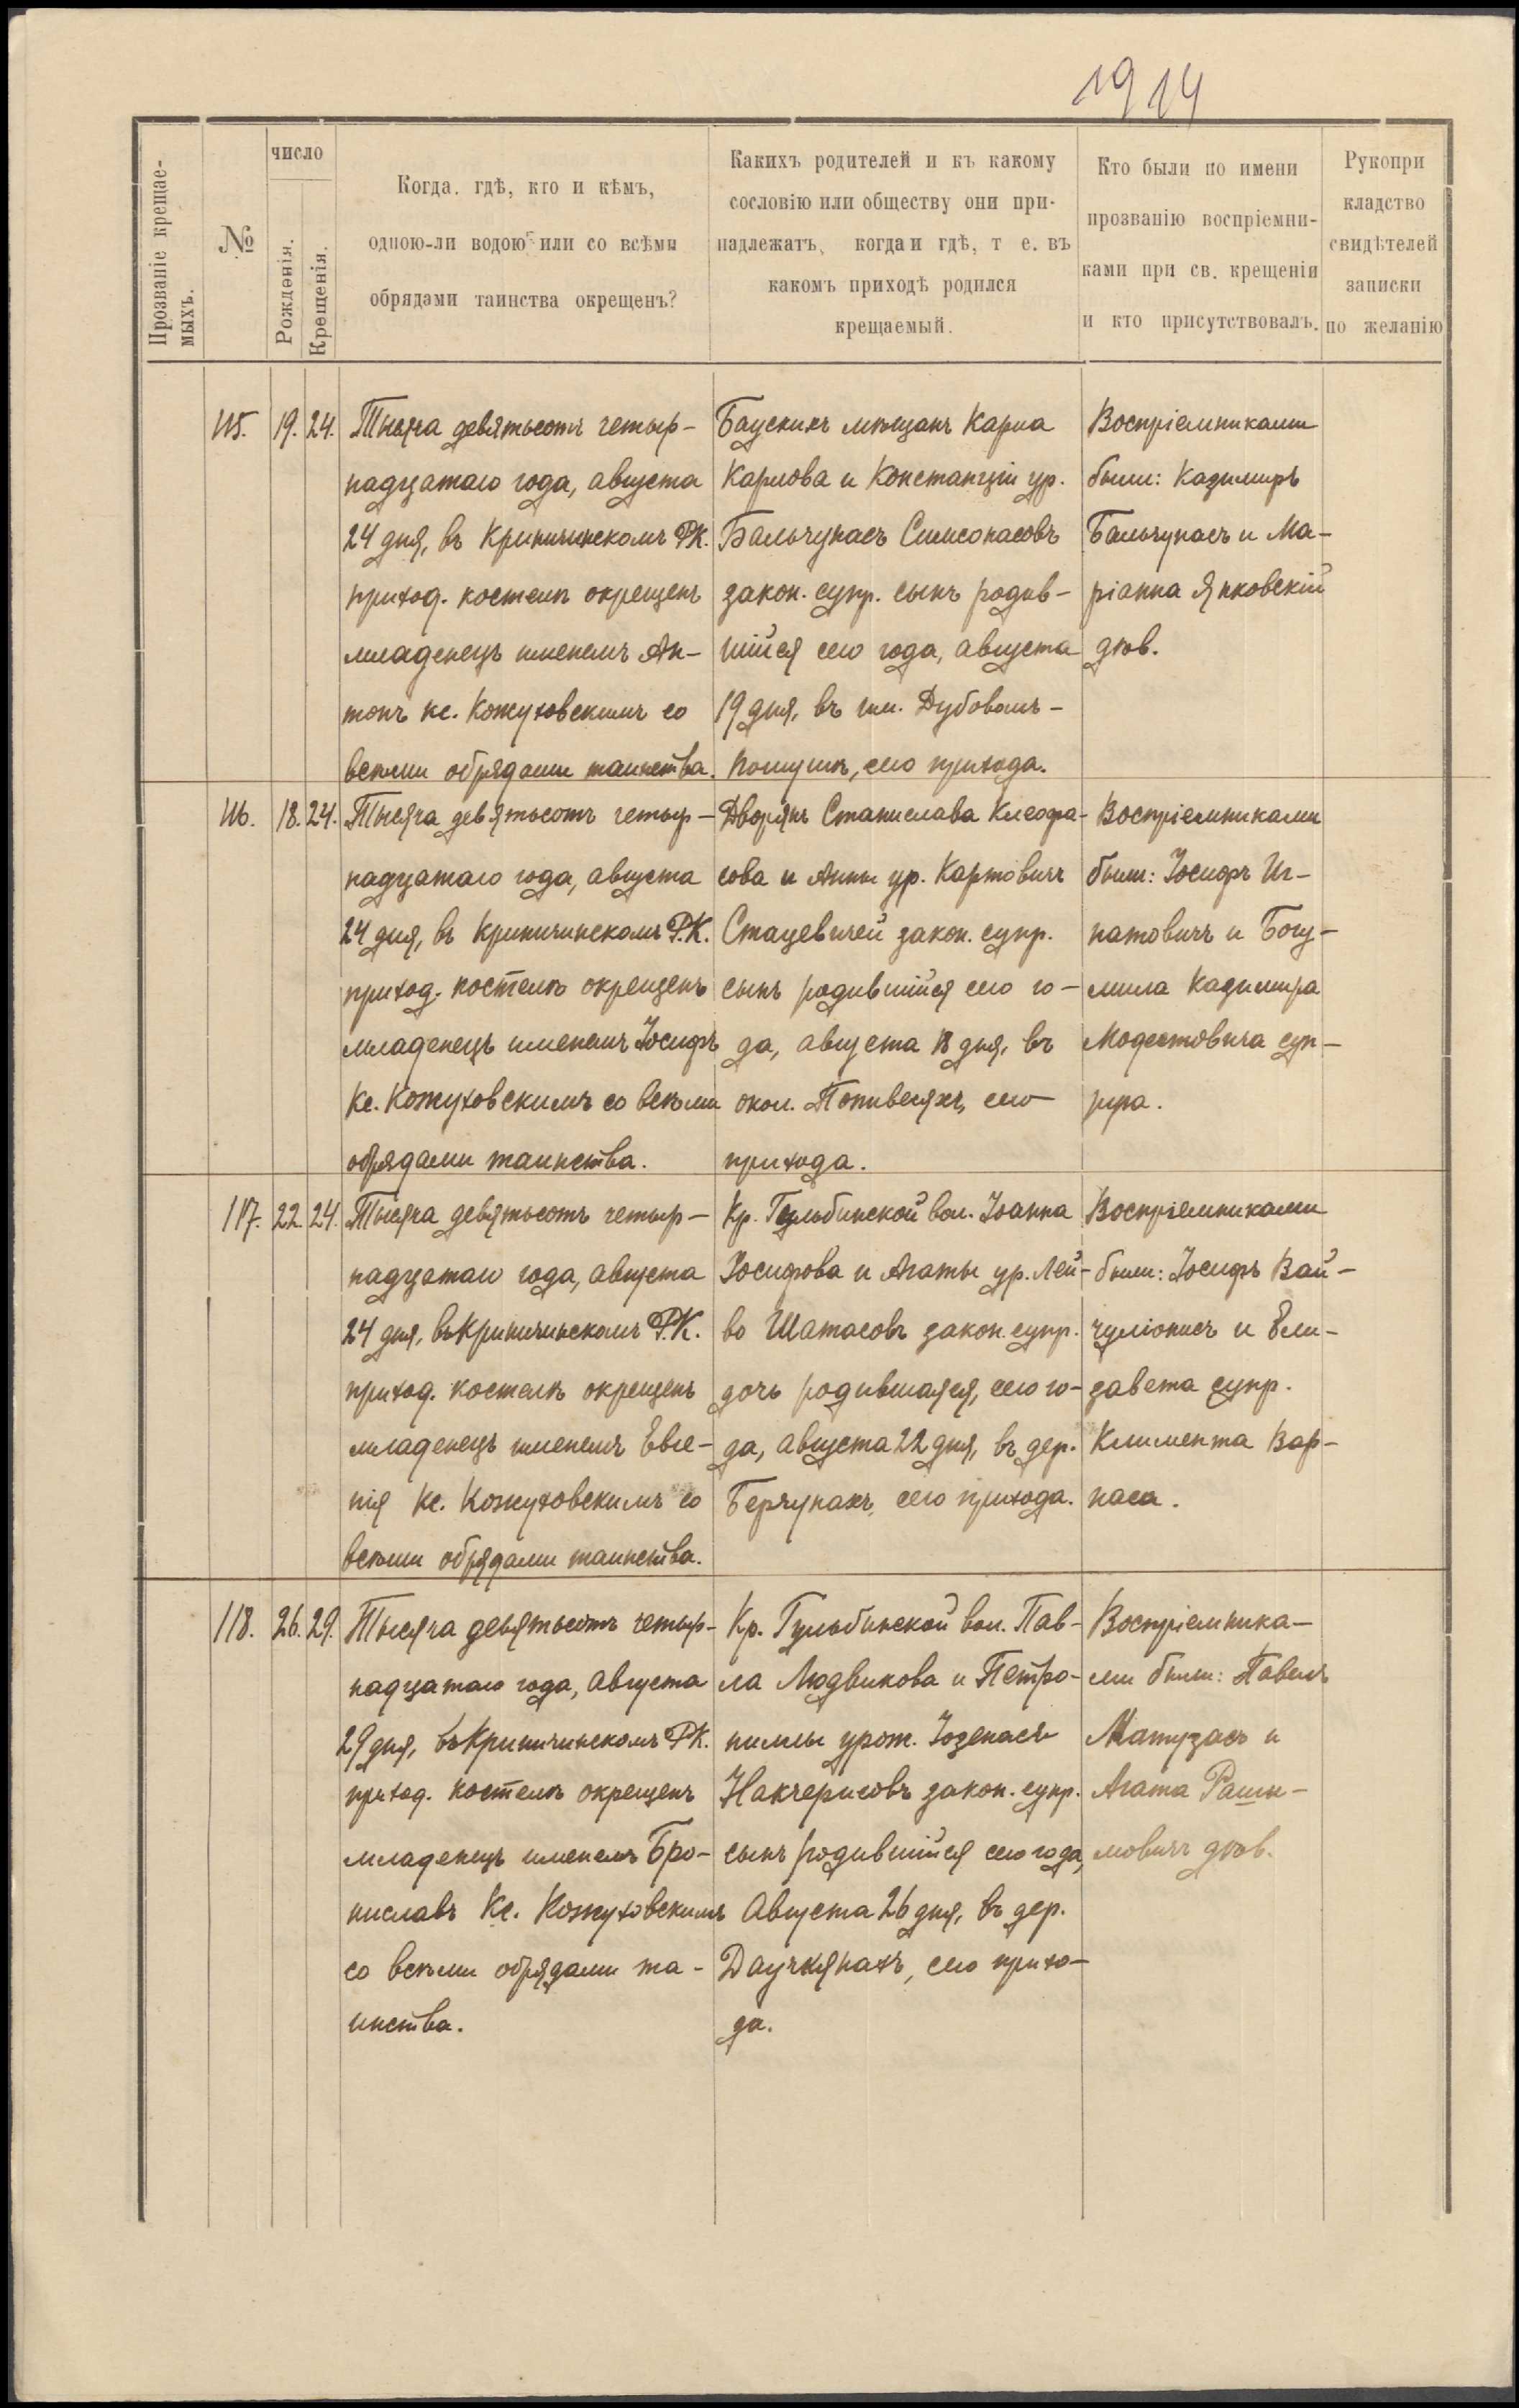 1914
Прозваніе крещае-
мыхъ.
№
число
Рожденія.
Крещенія.
Когда, гдѣ, кто и кѣмъ,
одною-ли водою или со всѣми
обрядами таинства окрещенъ?
Какихъ родителей и къ какому
сословію или обществу они при-
надлежатъ, когда и гдѣ, т е. въ
какомъ приходѣ родился
крещаемый.
Кто были по имени
прозванію воспріемни-
ками при св. крещеніи
и кто присутствовалъ.
Рукопри
кладство
свидѣтелей
записки
по желанію
115. 19. 24.
Тысяча девятьсотъ четыр-
надцатаго года, августа
24 дня, въ Криничинскомъ Р.К.
приход. костелѣ окрещенъ
младенецъ именемъ Ан-
тонъ кс. Кожуховскимъ со
всѣми обрядами таинства.
Баускихъ мѣщанъ Карла
Карлова и Констанціи ур.
Бальчунасъ Симсонасовъ
закон. супр. сынъ родив-
шійся сего года, августа
19 дня, въ им. Дубовомъ-
сего прихода.
Воспріемниками
были: Казимиръ
Бальчунасъ и Ма-
ріанна Янковскій
дѣв.
116. 18. 24.
Тысяча девятьсотъ четыр-
надцатаго года, августа
24 дня, въ Криничинскомъ Р.К.
приход. костелѣ окрещенъ
младенецъ именемъ Іосифъ
Кс. Кожуховскимъ со всѣми
обрядами таинства.
Дворянъ Станислава Клеофа-
сова и Анны ур. Картовичъ
Стацевичей закон. супр.
сынъ родившійся сего го-
да, августа 18 дня, въ
окол. сего
прихода.
Воспріемниками
были: Іосифъ Иг-
натовичъ и Богу-
мила Казимира
Модестовича суп-
руга.
117. 22. 24.
Тысяча девятьсотъ четыр-
надцатаго года, августа
24 дня, въ Криничинскомъ Р.К.
приход. костелѣ окрещенъ
младенецъ именемъ Евге-
нія Кс. Кожуховскимъ со
всѣми обрядами таинства.
Кр. Гульбинской вол. Іоанна
Іосифова и Агаты ур. Лей-
во Шатасовъ закон. супр.
дочь родившаяся, сего го-
да, августа 22 дня, въ дер.
Берчунахъ, сего прихода.
Воспріемниками
были: Іосифъ Вай-
чуліонисъ и Ели-
завета супр.
Климента Вар-
наса.
118. 26. 29.
Тысяча девятьсотъ четыр-
надцатаго года, Августа
29 дня, въ Криничинскомъ Р.К.
приход. костелѣ окрещенъ
младенецъ именемъ Бро-
ниславъ Кс. Кожуховскимъ
со всѣми обрядами та-
инства.
Кр. Гульбинской вол. Пав-
ла Людвикова и Петро-
ниллы урож. Юзенасъ
Накчерисовъ закон. супр.
сынъ родившійся сего года,
Августа 26 дня, въ дер.
Даучкянахъ, сего прихо-
да.
Воспріемника-
ми были: Павелъ
Матузасъ и
Агата Рашы-
мовичъ дѣв.